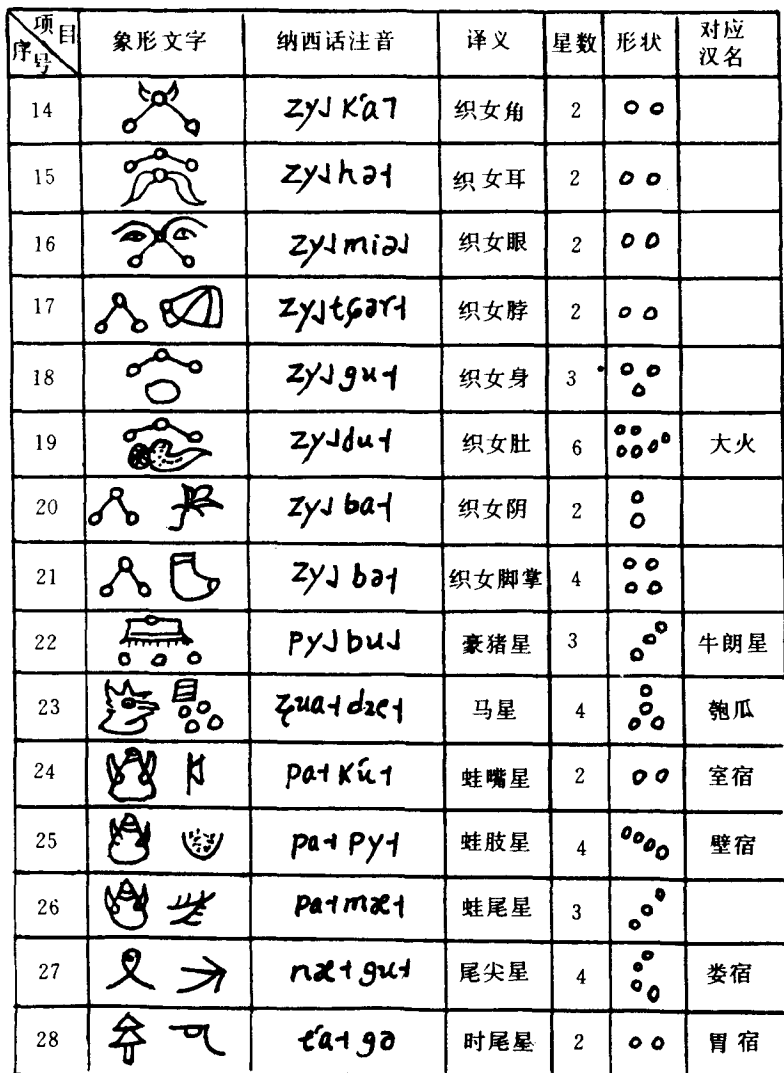 项目 序号 象形文字 纳西话注音 译义 星数 形状 对应汉名
14 zy˩ k'a˥ 织女角 2
15 zy˩ hə˧ 织女耳 2
16 zy˩ miə˩ 织女眼 2
17 zy˩ tʂər˧ 织女脖 2
18 zy˩ gu˧ 织女身 3
19 zy˩ du˧ 织女肚 6 大火
20 zy˩ ba˧ 织女阴 2
21 zy˩ bə˧ 织女脚掌 4
22 py˩ bu˩ 豪猪星 3 牛朗星
23 ʐua˧ dze˧ 马星 4 匏瓜
24 pa˧ k'u˧ 蛙嘴星 2 室宿
25 pa˧ py˧ 蛙肢星 4 壁宿
26 pa˧ mæ˧ 蛙尾星 3
27 næ˧ gu˧ 尾尖星 4 娄宿
28 t'a˧ gə 时尾星 2 胃宿